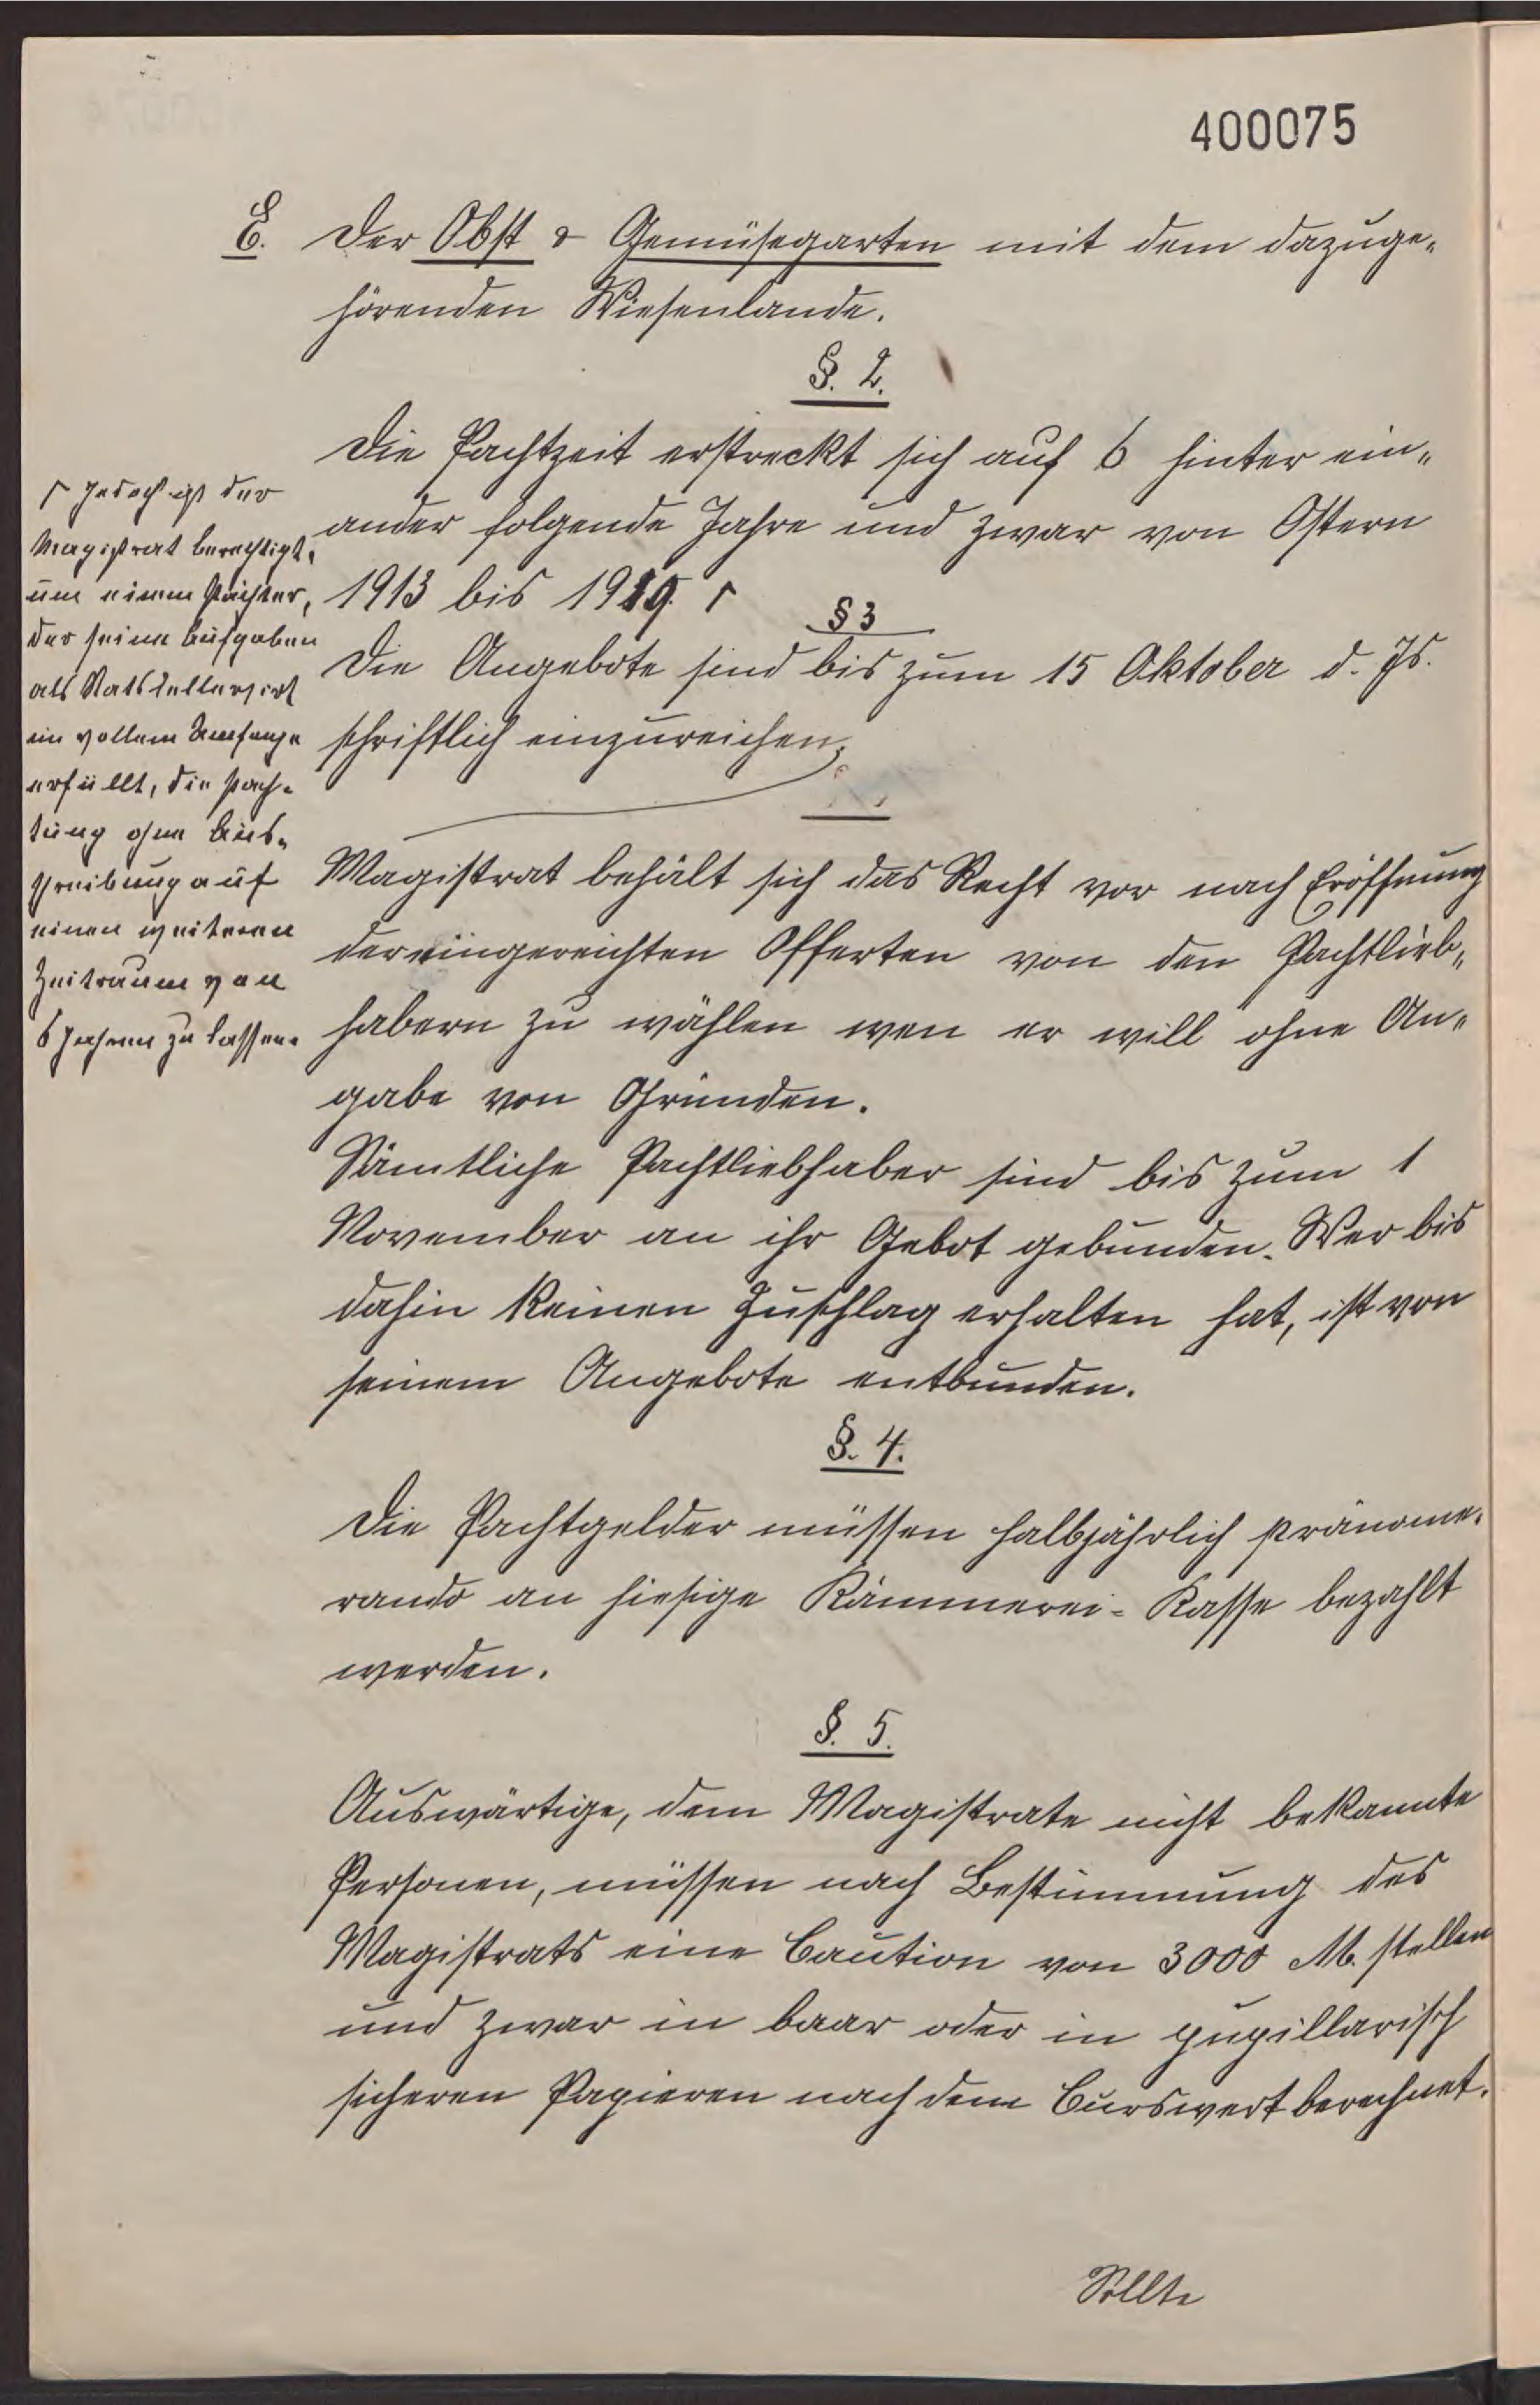 400075
E. Der Obst & Gemüsegarten mit dem dazuge„
hörenden Wiesenlande.
§. 2.
Die Pachtzeit erstreckt sich auf 6 hinter ein„
ander folgende Jahre und zwar von Ostern
1913 bis 1919. ┌
┌ Jedoch ist der
Magistrat berechtigt,
um einem Pächter,
der seine Aufgaben
als Ratskellerwirt
im vollem Umfange
erfüllt, die Pach-
tung ohne Aus-
schreibung auf
einen weiteren
Zeitraum von
6 Jahren zu lassen.
§ 3
Die Angebote sind bis zum 15 Oktober d. Js.
schriftlich einzureichen;
Magistrat behält sich das Recht vor nach Eröffnung
der eingereichten Offerten von den Pachtlieb„
habern zu wählen wen er will ohne An„
gabe von Gründen.
Sämtliche Pachtliebhaber sind bis zum 1
November an ihr Gebot gebunden. Wer bis
dahin keinen Zuschlag erhalten hat, ist von
seinem Angebote entbunden.
§. 4.
Die Pachtgelder müssen halbjährlich pränome-
rando an hiesige Kämmerei-Kasse bezahlt
werden.
§. 5.
Auswärtige, dem Magistrate nicht bekannte
Personen, müssen nach Bestimmung des
Magistrats eine Caution von 3000 M. stellen
und zwar in baar oder in pupillarisch
sicheren Papieren nach dem Curswert berechnet.
Sollte